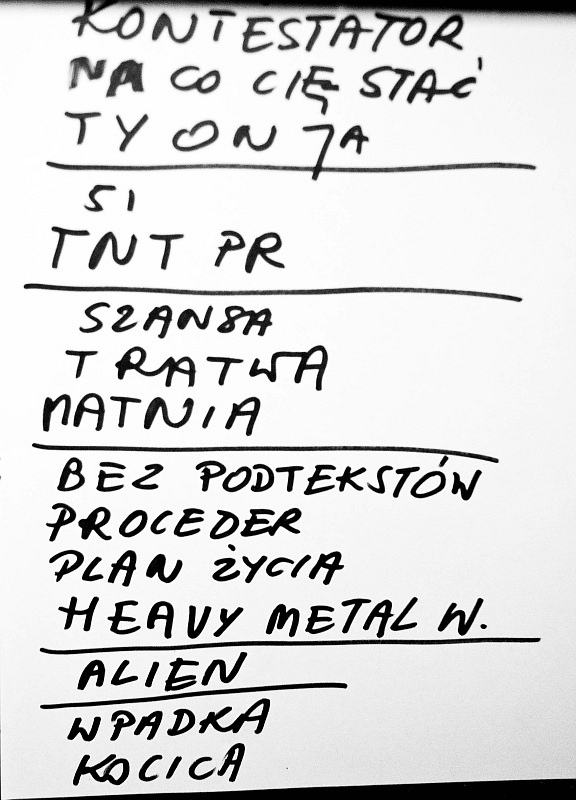 KONTESTATOR
NA CO CIĘ STAĆ
TY ON JA
51
TNT PR
SZANSA
TRATWA
MATNIA
BEZ PODTEKSTÓW
PROCEDER
PLAN ŻYCIA
HEAVY METAL W.
ALIEN
WPADKA
KOCICA